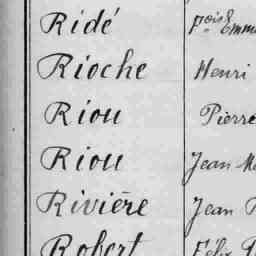 Ridé F.ois Emm
Rioche Henri
Riou Pierre
Riou Jean-M
Rivière Jean
Robert Félix